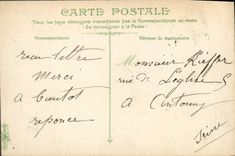 CARTE POSTALE
Tous les pays étrangers n'acceptent pas la Correspondance au recto
(Se renseigner à la Poste)
Correspondance
Adresse du destinataire
recu lettre
Merci
a Bientot
reponce
Monsieur Kieffer
rue de Leglise
a Antony
Seine